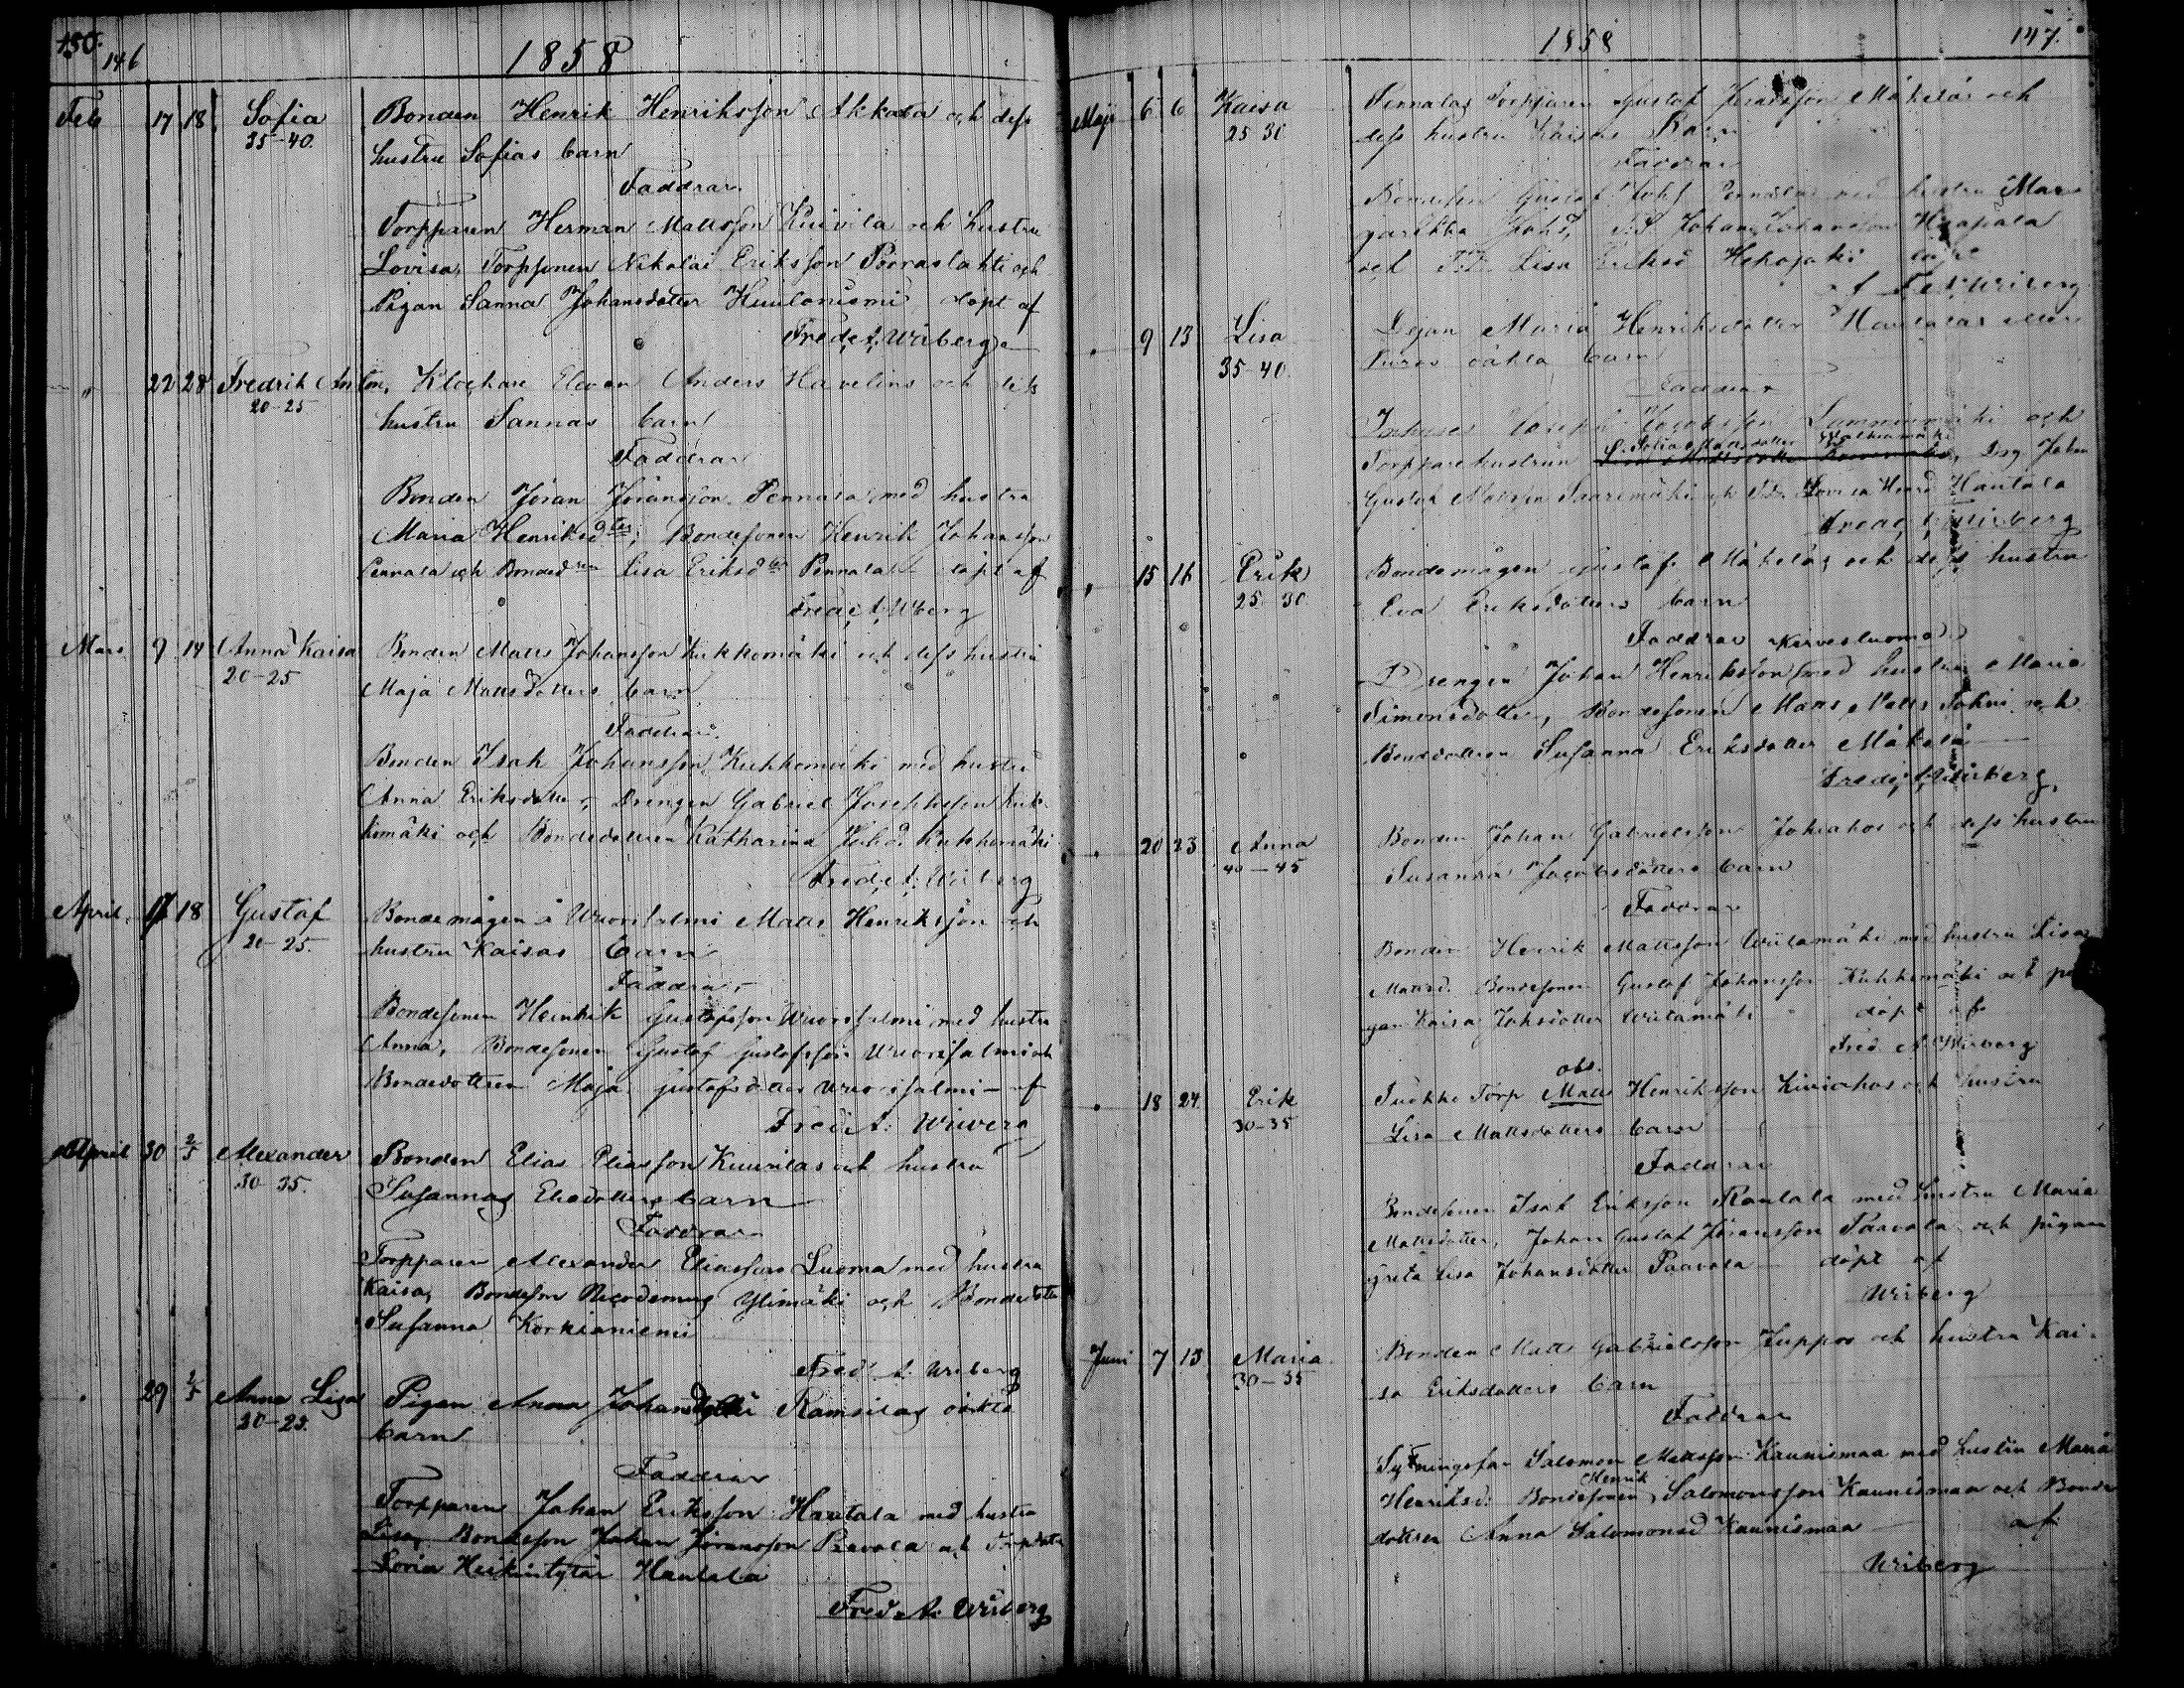 150.
146
1858
Feb 17 18 Sofia Bonden Henrik Henriksson Akkola och dess
35-40. hustru Sofias barn
Faddrar
Torpparen Herman Mattsson Kuivila och hustru
Lovisa, Torpsonen Nikolai Eriksson Pooraslahti och
Pigan Sanna Johansdotter Huilaniemi döpt af
Fred. A. Wiberg
" 22 28 Fredrik Anton, Klockare Eleven Anders Havelins och dess
20-25 hustru Sannas barn
Faddrar
Bonden Jöran Jöransson Pennala med hustru
Maria Henriksdter, Bondesonen Henrik Johansson
Pennala och Bondedren Lisa Eriksdter Pennala döpt af
Fred. A. Wberg
Mars 9 14 Anna Kaisa Bonden Matts Johansson Kukkomäki och dess hustru
20-25 Maja Mattsdotters barn
Faddrar
Bonden Isak Johansson Kukkomäki med hustru
Anna Eriksdotter, Drengen Gabriel Josephsson Kuk-
komäki och Bondedottren Katharina Kukkomäki
Fred. A. Wiberg
April 17 18 Gustaf Bondemågen å Wuorisalmi Matts Henriksson och
20-25. hustru Kaisas barn
Faddrar
Bondesonen Heinrik Gustafsson Wuorisalmi med hustru
Anna, Bondesonen Gustaf Gustafsson Wuorisalmi och
Bondedottren Maja Gustafsdotter Wuorisalmi - af
Fred. A. Wiberg
April 30 2/5 Alexander Bonden Elias Eliasson Kuurilas och hustru
30-35. Susannas Eliedotters barn
Faddrar
Torpparen Alexander Eliasson Luoma med hustru
Kaisa, Bondeson Nicodemus Ylimäki och Bondedotter
Susanna Korkianiemi
Fred. A. Wiberg
" 29 2/5 Anna Lisa Pigan Anna Johansdotter Ramsilas oäkta
20-25. barn
Faddrar
Torpparen Johan Eriksson Hautala med hustru
Lisa, Bondeson Johan Jöransson Paavola och Torpdotter
Lovisa Heikintytär Hautala
Fred. A. Wiberg
1858
147.
Maji 6 6 Kaisa Pennalas Torpparen Gustaf Jöransson Mäkelä och
25 30 dess hustru Kaisas Barn
Faddrar
Bondeson Gustaf Pennala med hustru Mar-
garetha Johan Johansson Haapala
och Lisa Eriksd döpt
af Fr. Wiberg
" 9 13 Lisa Pigan Maria Henriksdotter Hautalas eller
35-40. Puros oäkta barn
Faddrar
Josephsson och
Torpparehustrun Sofia Mattsdotter, Dreng Johan
Gustaf Mattsson Saarimäki och Lovisa Henrd Hautala
Fred. A. Wiberg
" 15 16 Erik Bondemågen Gustaf Mäkelä och dess hustru
25 30 Eva Eriksdotters barn
Faddrar Kirvesluoma
Drengen Johan Henriksson med hustru Maria
Simonsdotter, Bondesonen Matts Matts och
Bondedottren Susanna Eriksdotter Mäkelä
Fred. A. Wiberg
" 20 23 Anna Bonden Johan Gabrielsson Jokiahos och dess hustru
40-45 Susanna Jacobsdotters barn
Faddrar
Bonden Henrik Mattsson Wiitamäki med hustru Lisa
Mattsd. Bondesonen Gustaf Johansson Kukkomäki och pi-
gan Kaisa Johsdotter Wiitamäki döpt af
Fred. A. Wiberg
obs.
" 18 24 Erik Torp Matts Henriksson Kiviahos och hustru
30-35 Lisa Mattsdotters barn
Faddrar
Bondesonen Isak Eriksson Rautala med hustru Maria
Mattsdotter, Johan Gustaf Jöransson Paavola och pigan
Greta Lisa Johansdotter Paavola döpt af
Wiberg
Juni 7 13 Maria Bonden Matts Gabrielsson Juppos och hustru Kai-
30-35 sa Eriksdotters barn
Faddrar
Sytningsfar Salomon Mattsson Kaunismaa med hustru Maria
Henriksd: Bondesonen Henrik Salomonsson Kaunismaa och Bonde
dottren Anna Salomonsd Kaunismaa af
Wiberg